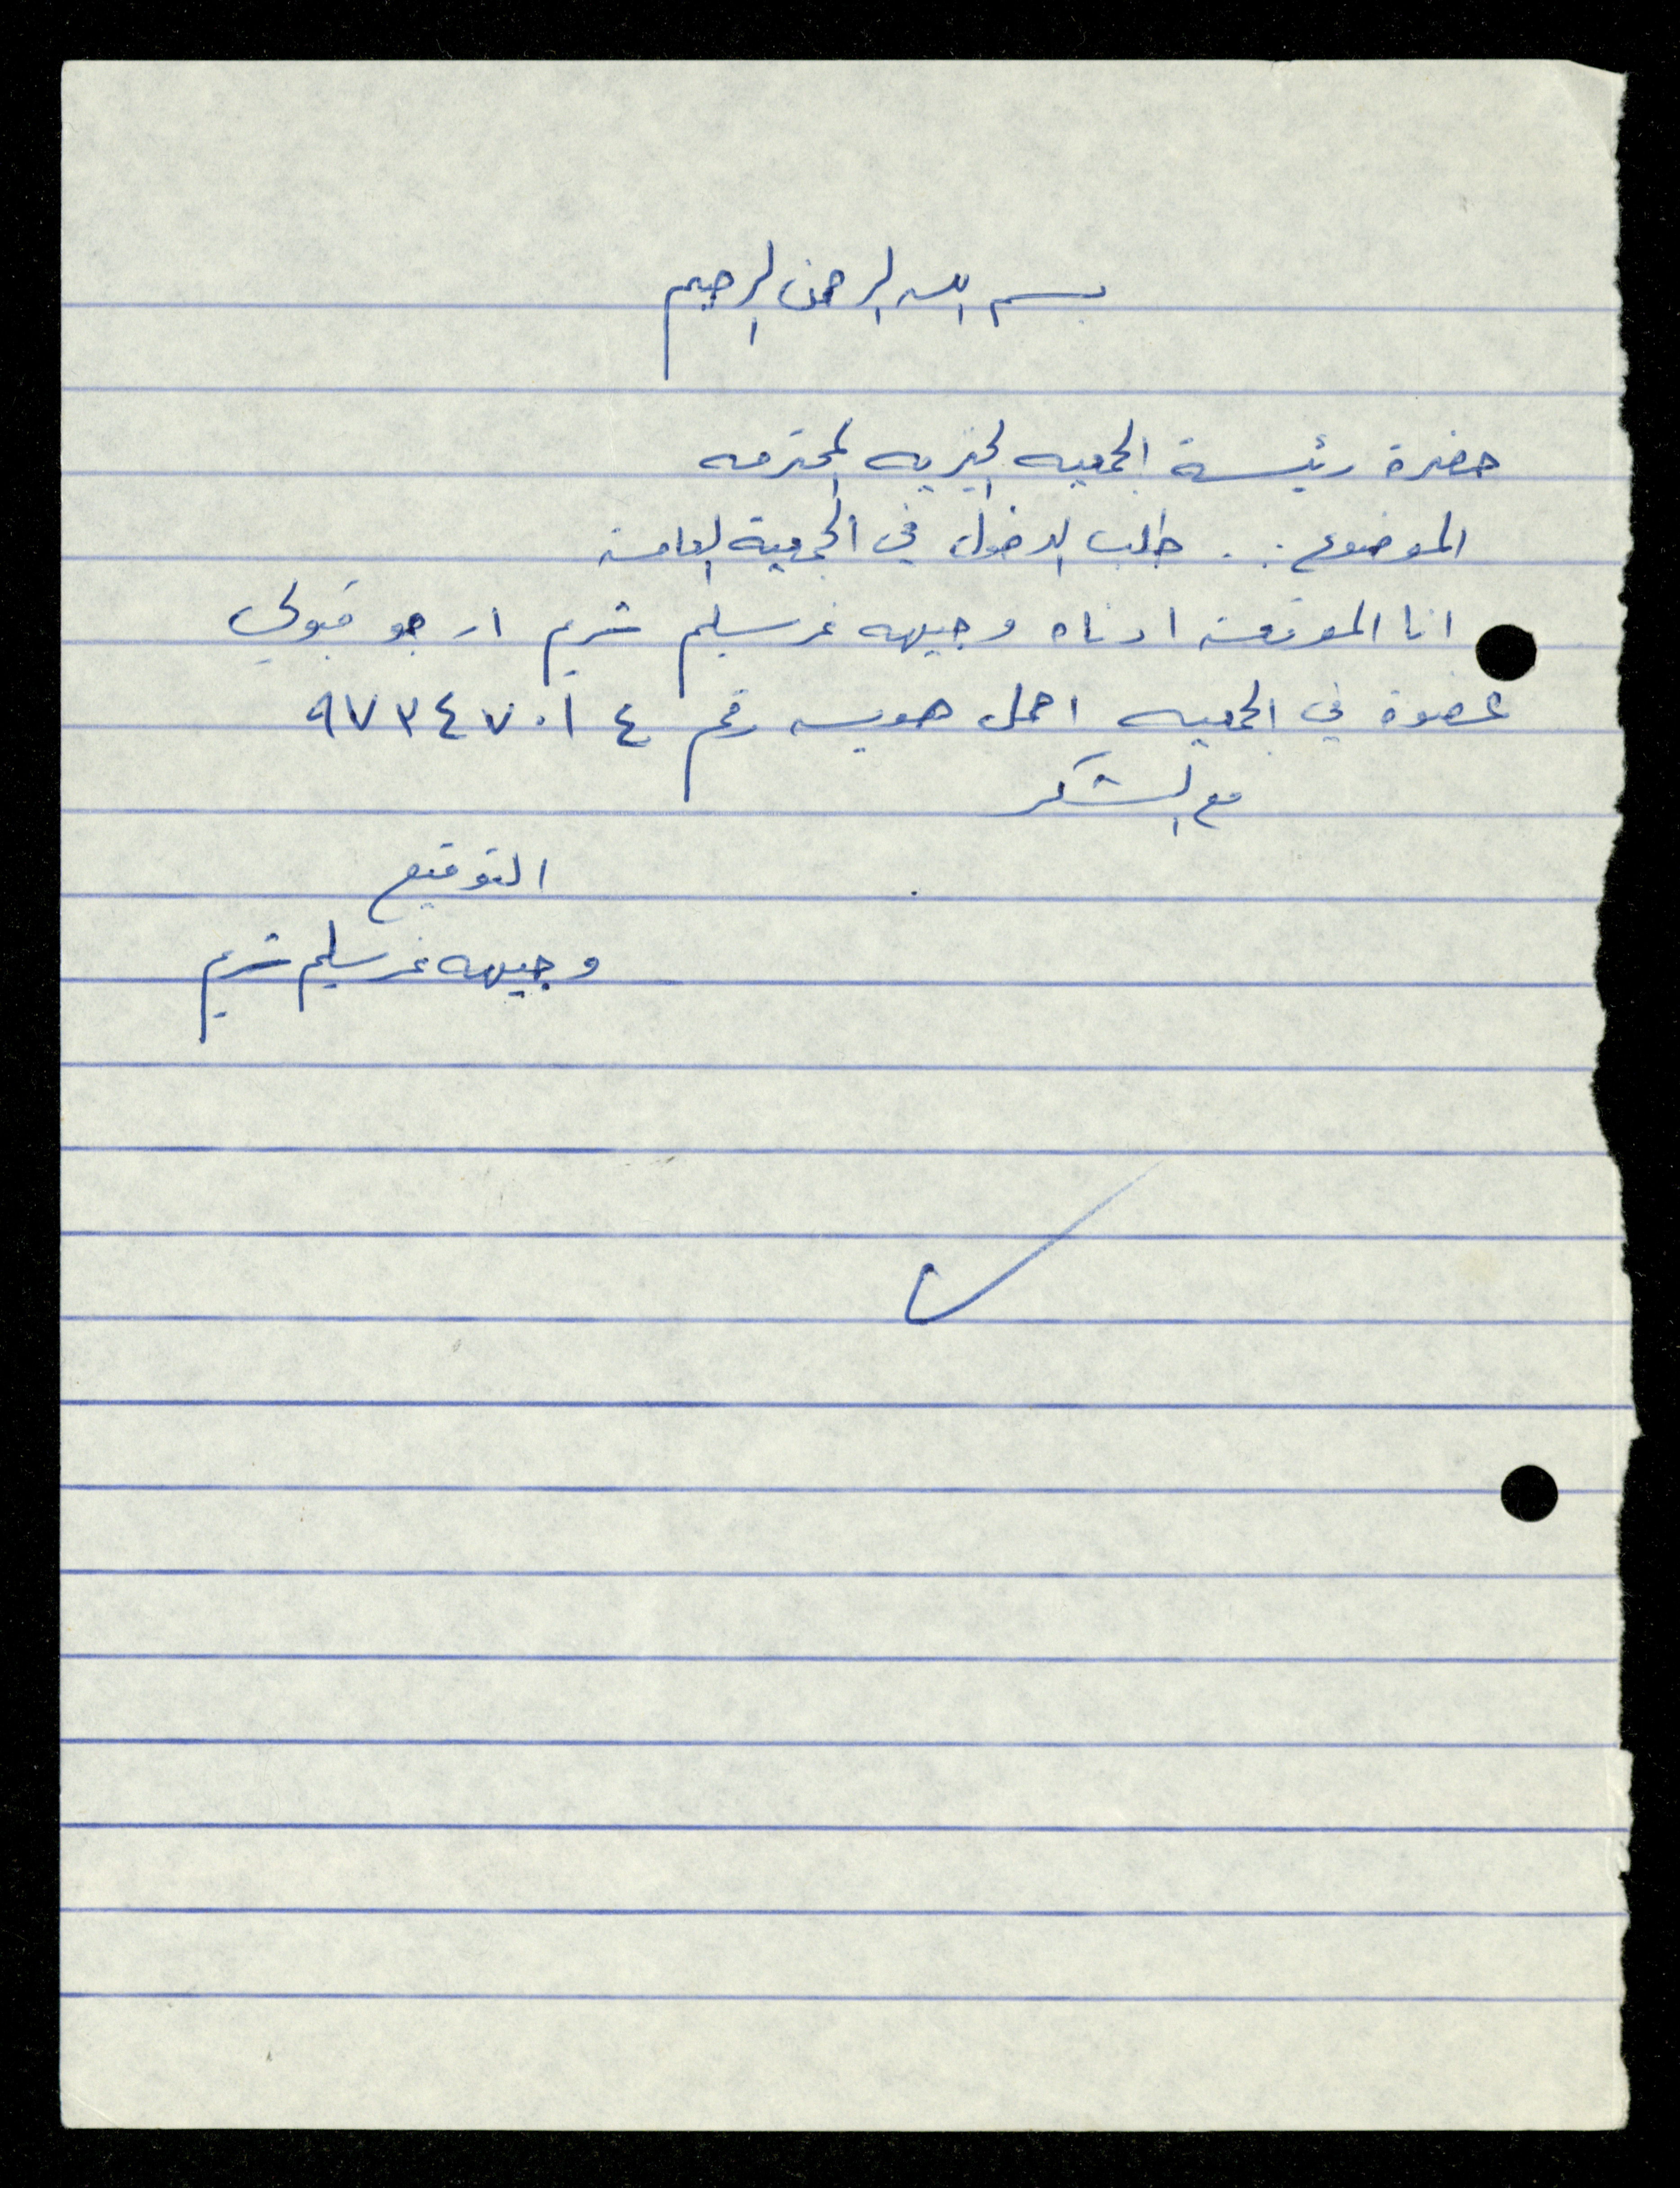 بسم الله الرحمن الرحيم
حضرة رئيسة الجمعيه الخيريه المحترمه
الموضوع :. طلب الدخول في الجمعية العامة
انا الموقعة ادناه وجيهه عمر سليم شريم ارجو قبولي
عضوة في الجمعيه احمل هويه رقم ٩٧٣٤٧٠١٤
مع الشكر
التوقيع
وجيهه عمر سليم شريم